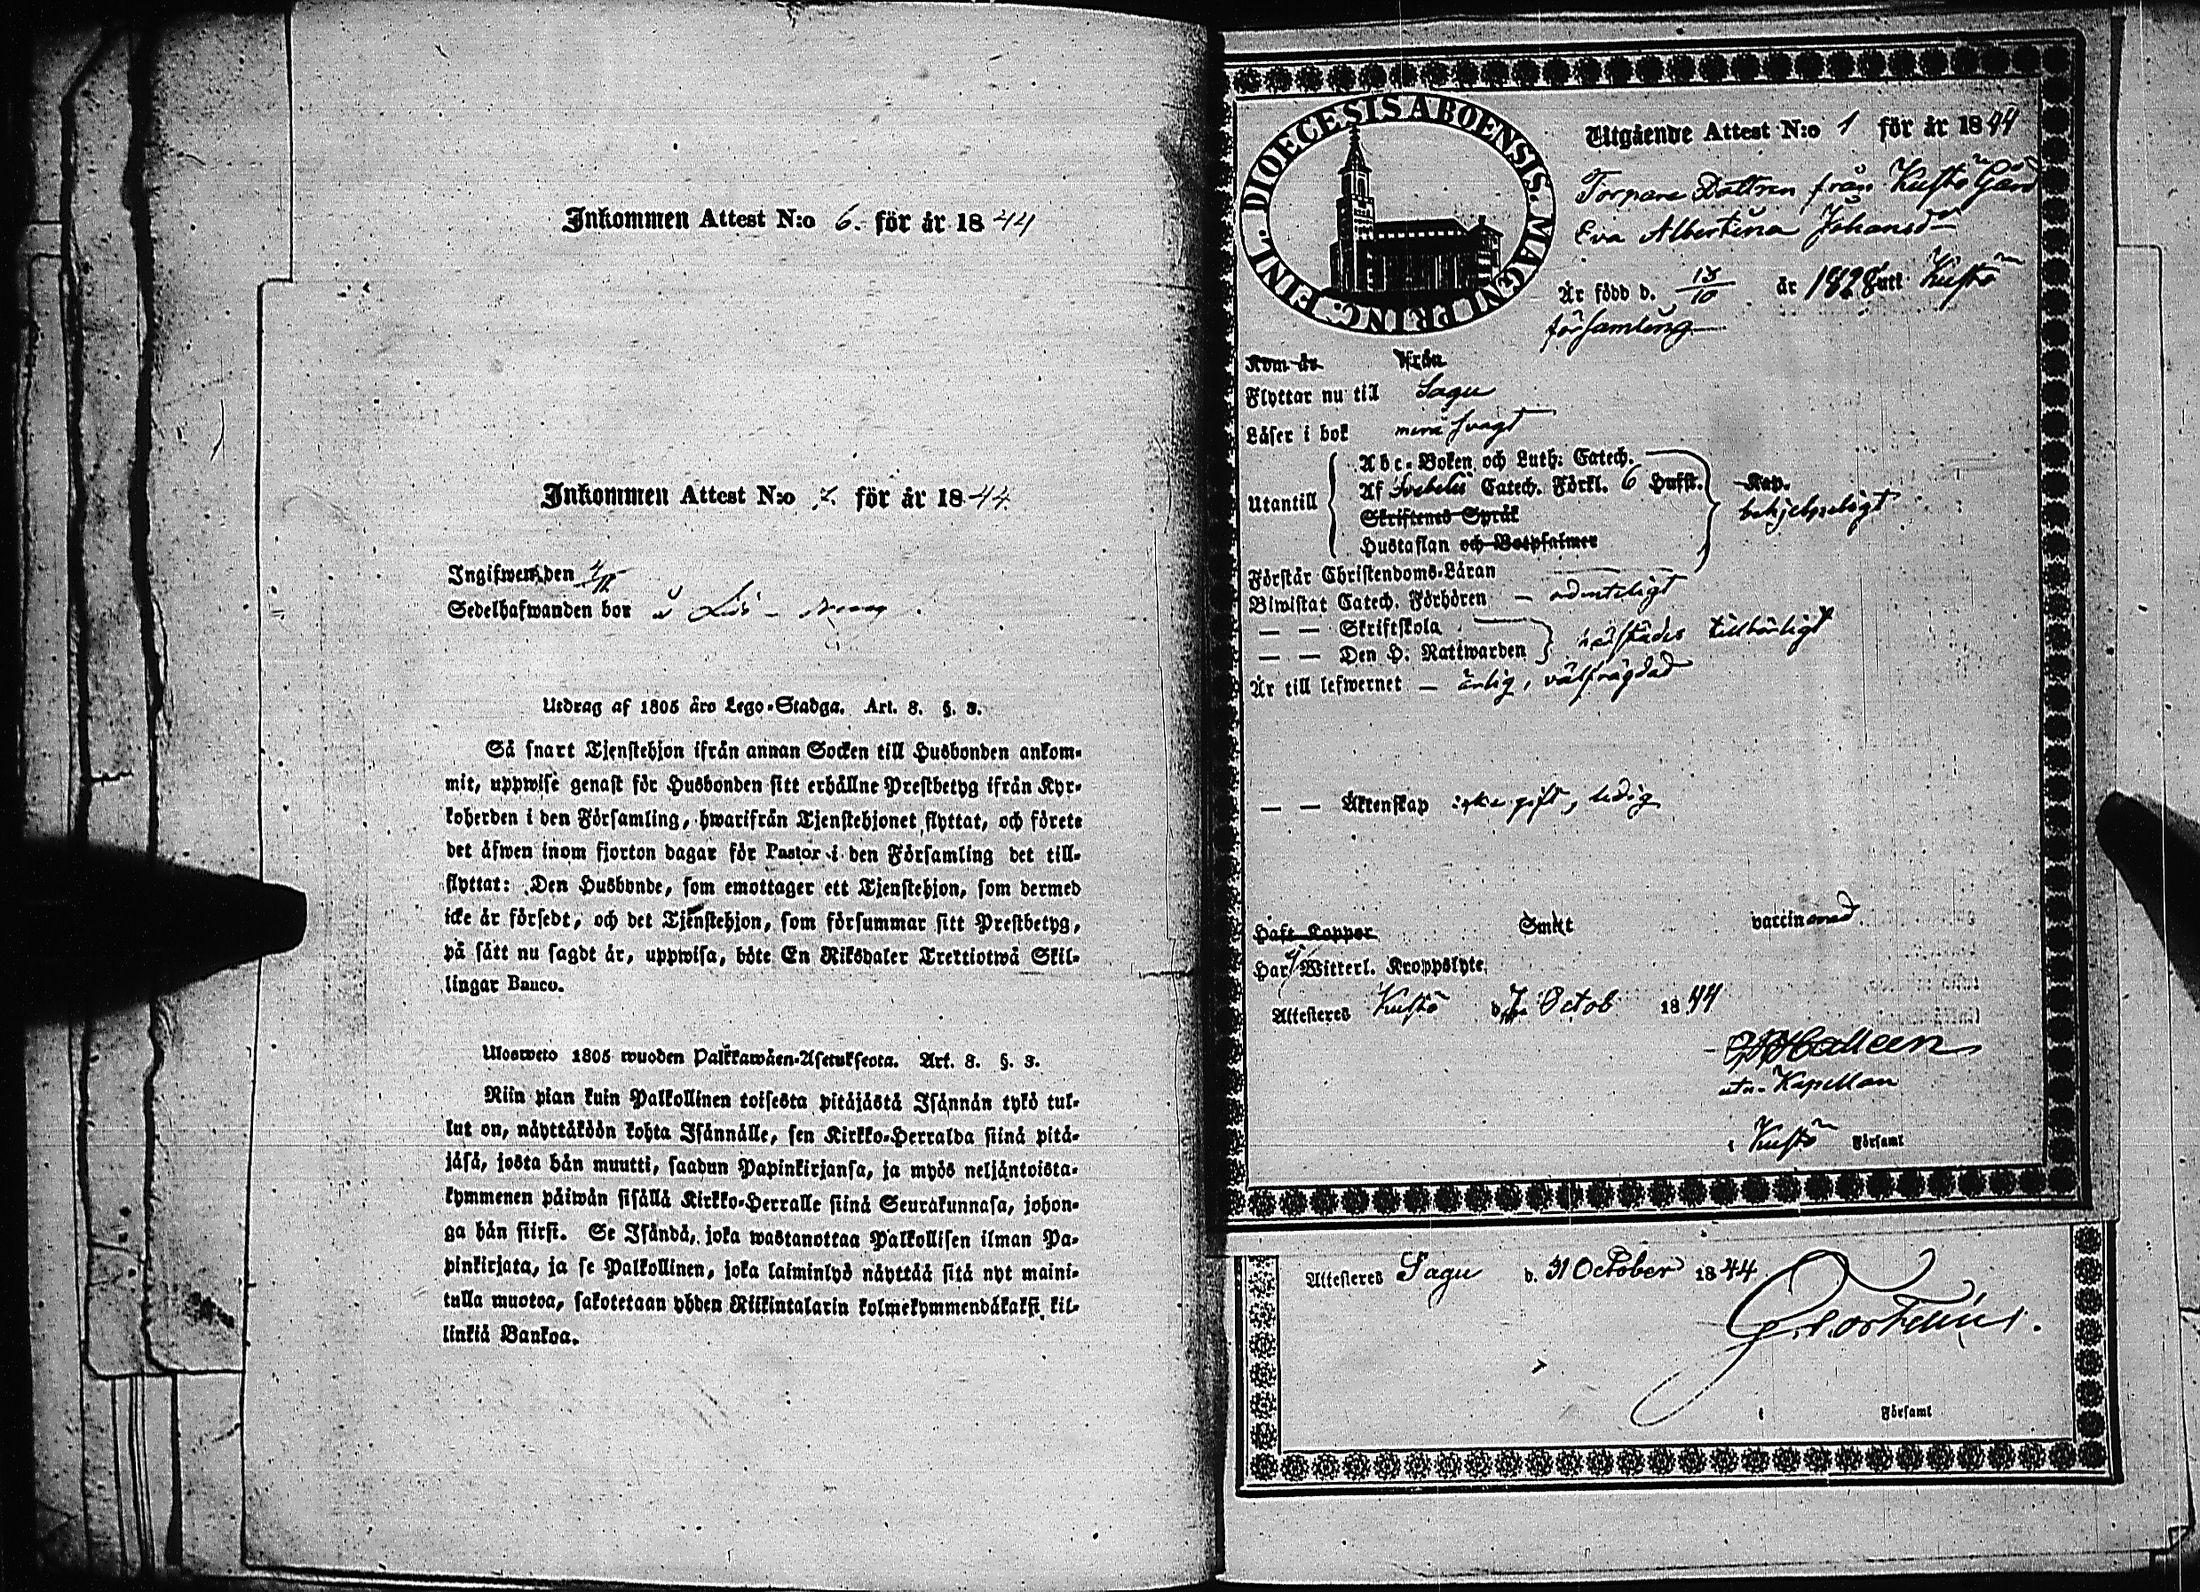 Inkommen Attest N:o 6. för år 1844
Inkommen Attest N:o 7. för år 1844.
Ingifwen den 4/11
Sedelhafwanden bor i
Utdrag af 1805 års Lego-Stadga. Art. 8. §. 3.
Så snart Tjenstehjon ifrån annan Socken till Husbonden ankom-
mit, uppwise genast för Husbonden sitt erhållne Prestbetyg ifrån Kyr-
koherden i den Församling, hwarifrån Tjenstehjonet flyttat, och förete
det äfwen inom fjorton dagar för Pastor i den Församling det till-
flyttat: Den Husbonde, som emottager ett Tjenstehjon, som dermed
icke är försedt, och det Tjenstehjon, som försummar sitt Prestbetyg,
på sätt nu sagdt är, uppwisa, böte En Riksdaler Trettiotwå Skil-
lingar Banco.
Ulosweto 1805 wuoden Palkkawäen-Asetuksesta. Art. 8. §. 3.
Niin pian kuin Palkollinen toisesta pitäjästä Isännän tykö tul-
lut on, näyttäköön kohta Isännälle, sen Kirkko-Herralda siinä pitä-
jäsä, josta hän muutti, saadun Papinkirjansa, ja myös neljäntoista-
kymmenen päiwän sisällä Kirkko-Herralle siinä Seurakunnasa, johon-
ga hän siirst. Se Isändä, joka wastanottaa Palkollisen ilman Pa-
pinkirjata, ja se Palkollinen, joka laiminlyö näyttää sitä nyt maini-
tulla muotoa, sakotetaan yhden Riikintalarin kolmekymmendäkaksi kil-
linkiä Bankoa.
DIOECESIS ABOENSIS. MAGNI PRINC. FINL.
Utgående Attest N:o 1 för år 1844
Torpare Dottren från Kustö Gård
Eva Albertina Johansdr
Är född d. 15/10 år 1828 uti Kustö
församling
Kom år från
Flyttar nu till Sagu
Läser i bok svagt
Utantill
Abc-Boken och Luth: Catech.
Af Svebelii Catech. Förkl. 6 Hufst.
Skriftenes Språk
Hustaflan och Botpsalmer
Kap.
behjelpeligt
Förstår Christendoms-Läran
Biwistat Catech. Förhören — ordenteligt
— — Skriftskola
— — Den H. Nattwarden
tillbörligt
Är till lefwernet — ärlig, välfrägdad
— — Äktenskap icke gift, ledig
Haft Koppor Smitt vaccinerad
Har Witterl. Kroppslyte
Attesteres Kustö d. Octob 1844
Kapellan
i Kustö Församl
Attesteres Sagu d. 31 October 1844
i Församl